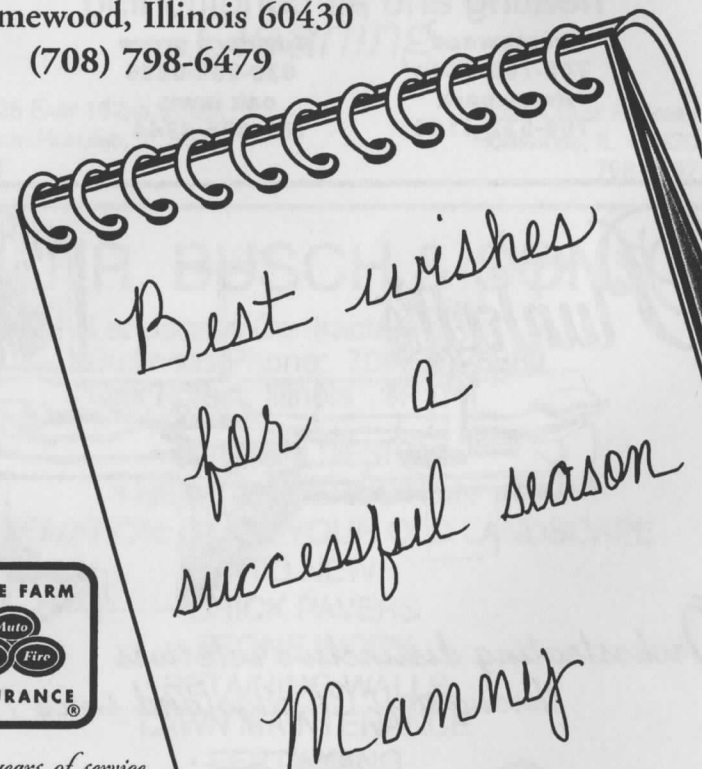 mewood, Illinois 60430
(708) 798-6479
Best wishes
for a
successful season
Manny
E FARM
Auto
Fire
URANCE
®
years of service